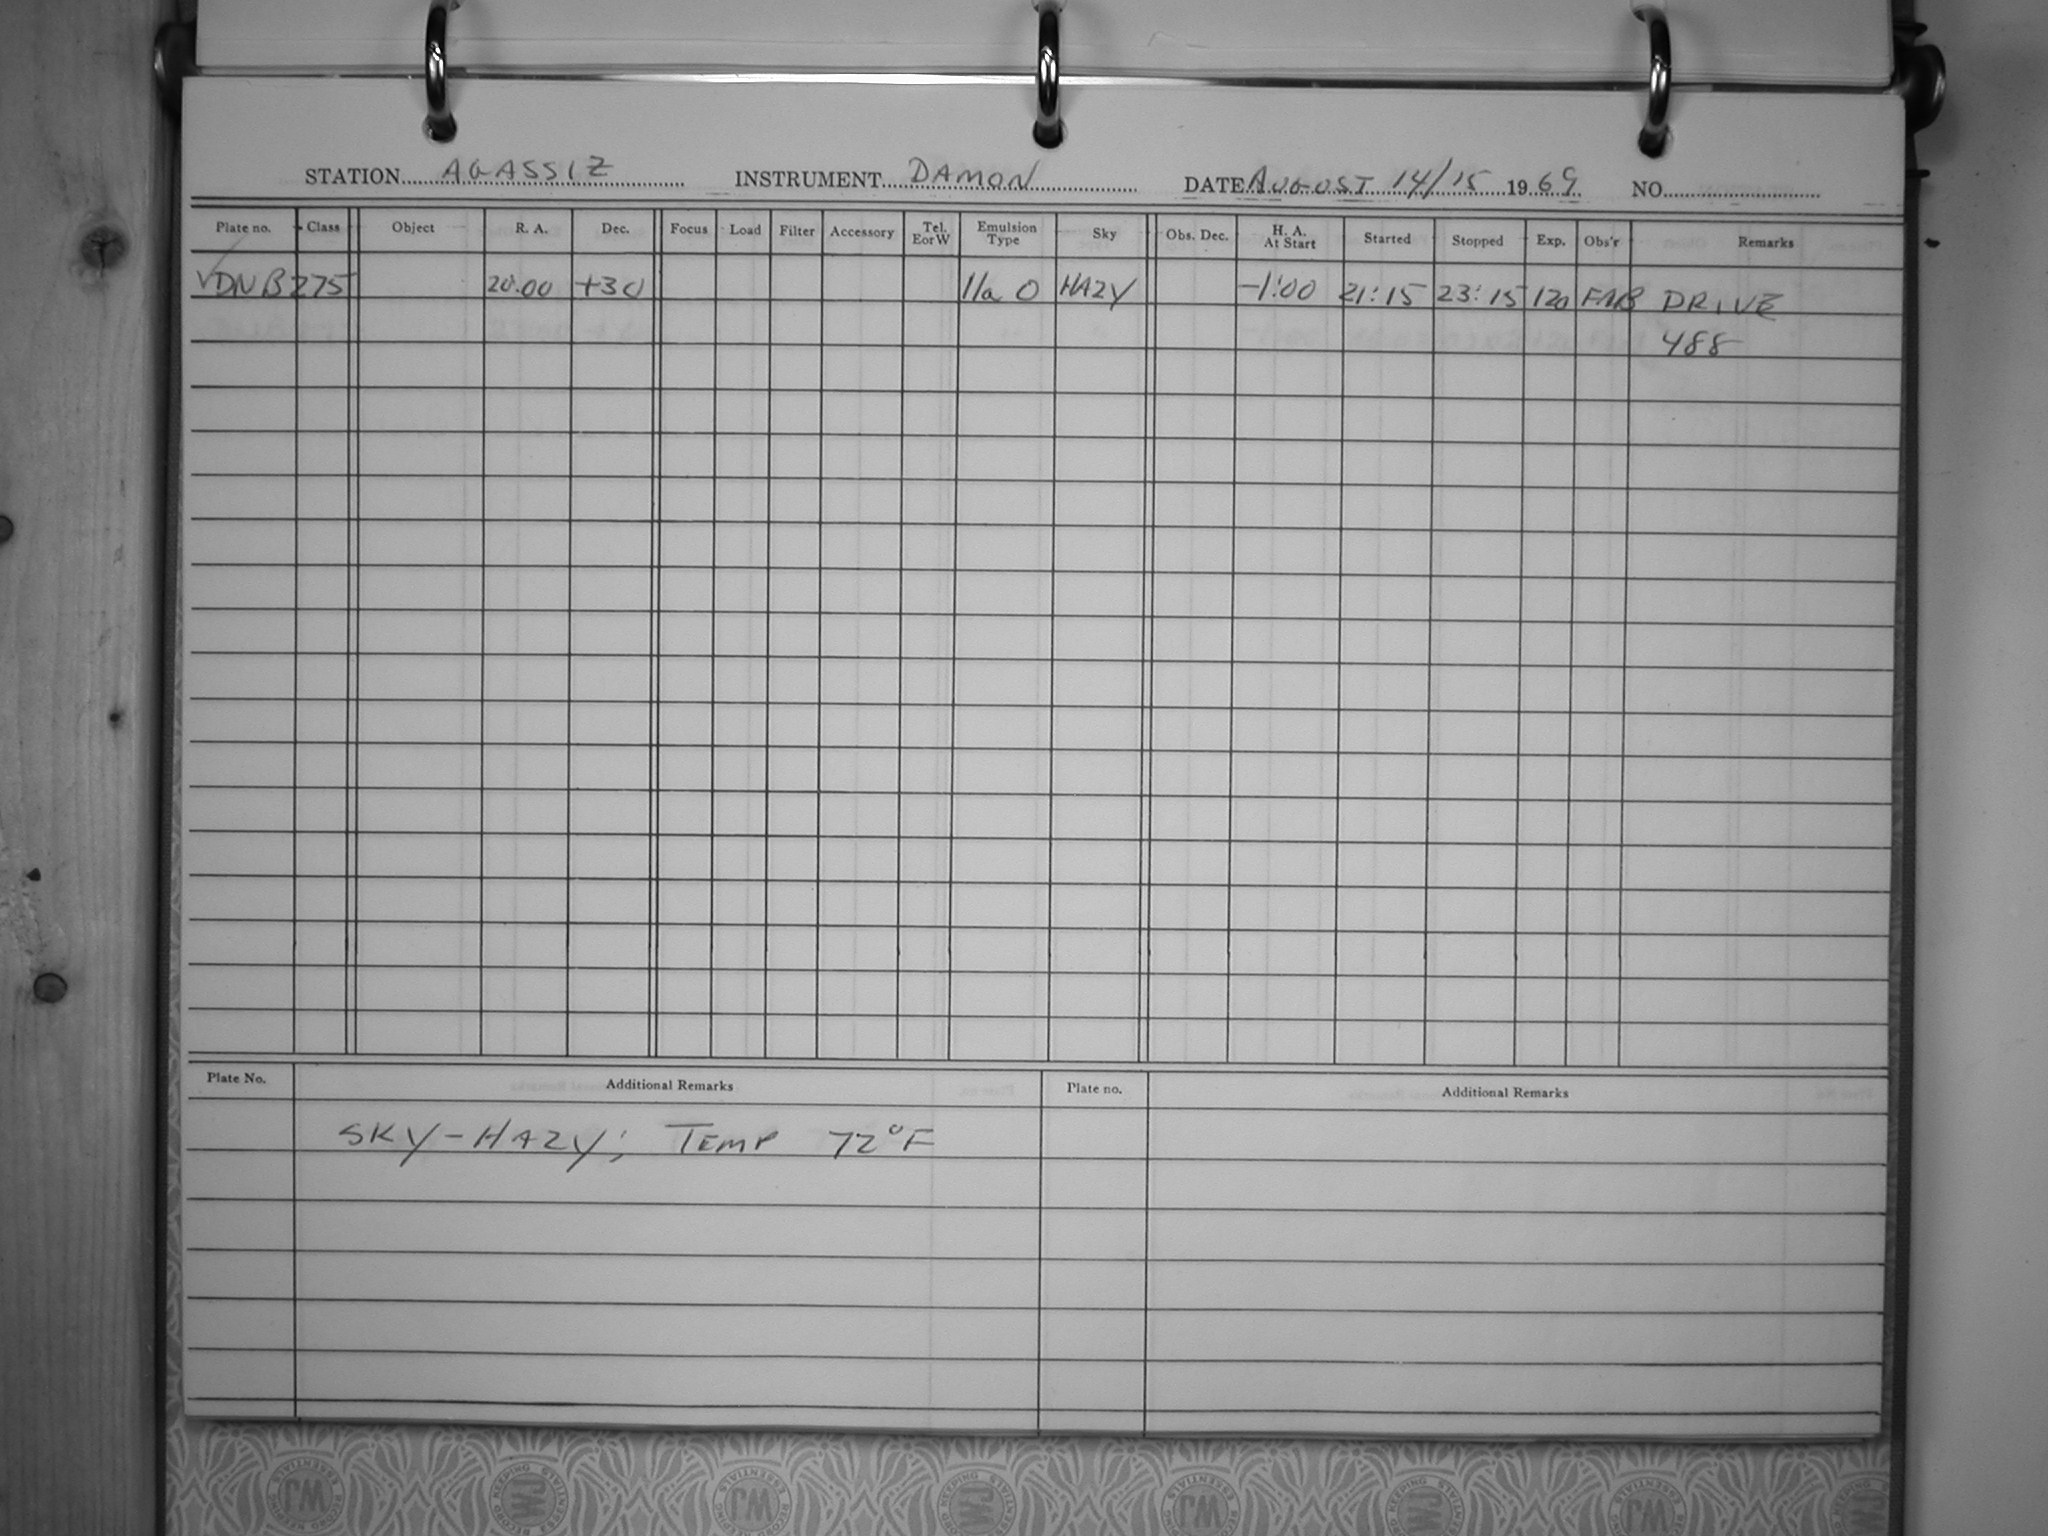 STATION AGASSIZ INSTRUMENT DAMON DATE AUGUST 14/15 1969 NO.
Plate no. Class Object R. A. Dec. Focus Load Filter Accessory Tel. E or W Emulsion Type Sky Obs. Dec. H. A. At Start Started Stopped Exp. Obs'r Remarks
DNB 275 20:00 +30 IIa O HAZY -1:00 21:15 23:15 120 DRIVE
488
Plate No. Additional Remarks Plate no. Additional Remarks
SKY-HAZY; TEMP 72°F